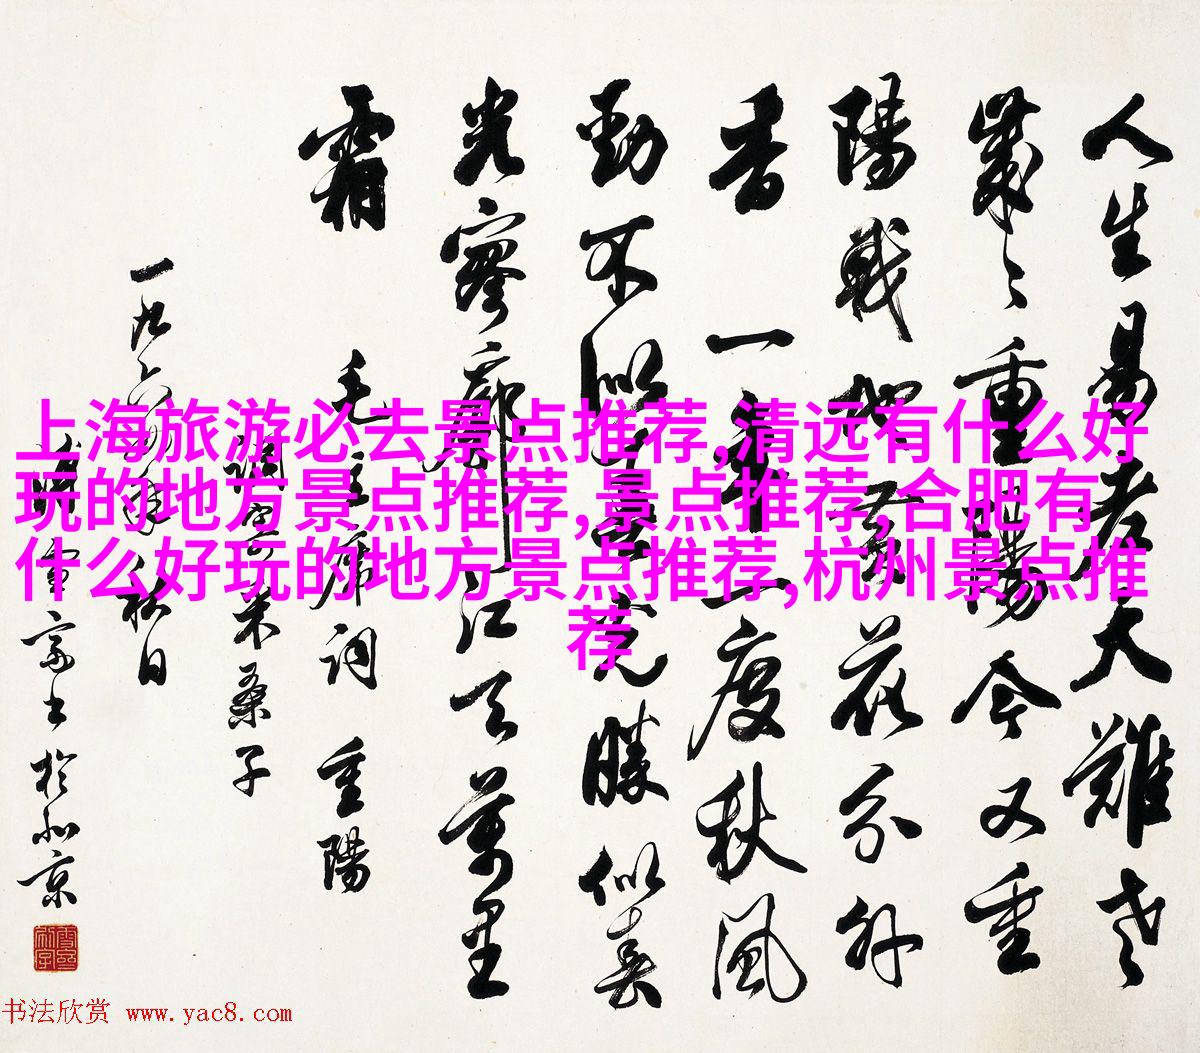 人生易老天難老
歲々重陽今又重
陽戰地黃花分外
香 一年一度秋風
勁不似春光勝似春
光寥廓江天萬里
霜 毛主席詞 重陽
調寄采桑子
一九六 年秋日
書於北京
上海旅游必去景点推荐,清远有什么好
玩的地方景点推荐,景点推荐,合肥有
什么好玩的地方景点推荐,杭州景点推
荐
书法欣赏 www.yac8.com